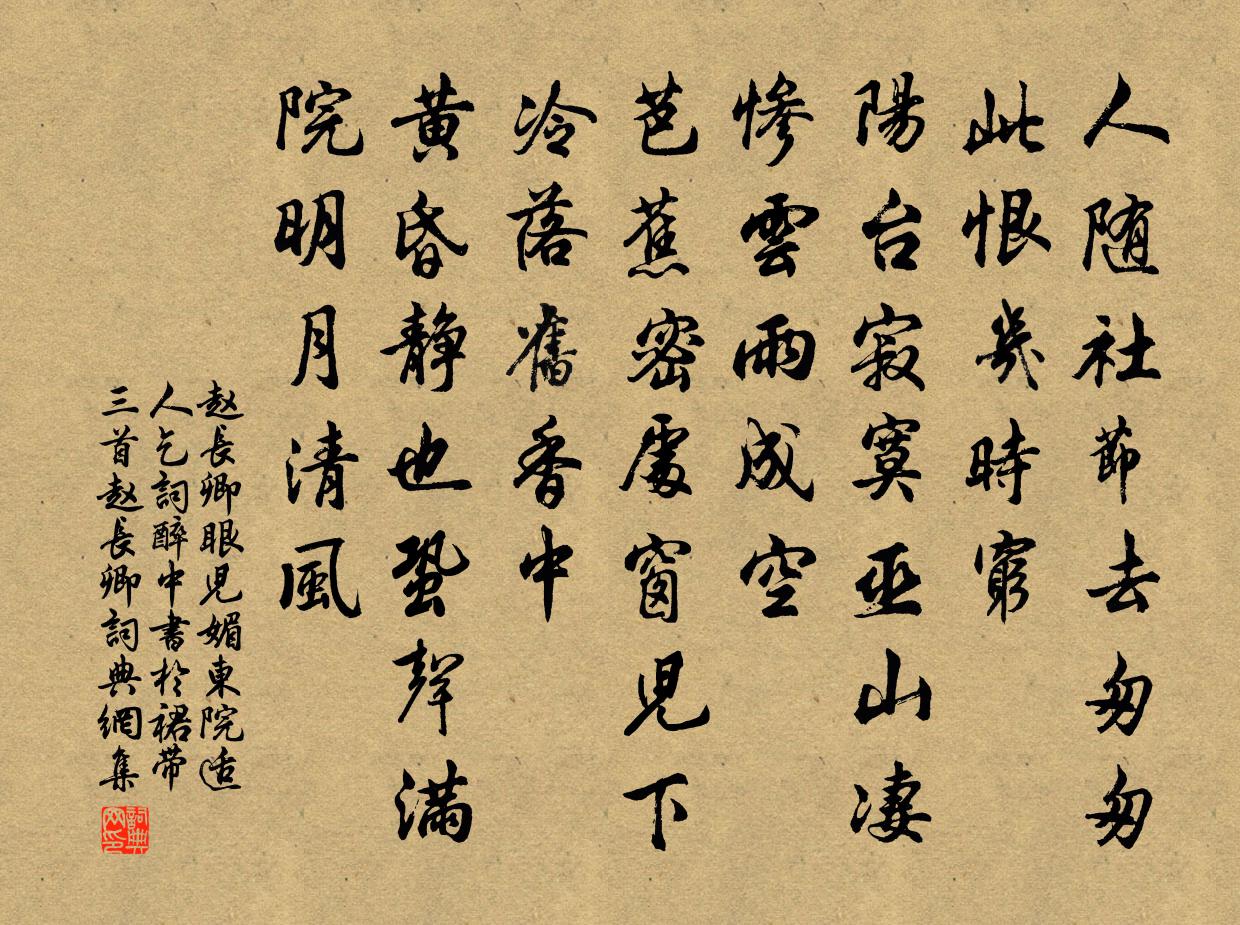 人随社節去匆匆
此恨幾時窮
陽台寂寞巫山凄
慘雲雨成空
芭蕉密處窗兒下
冷落舊香中
黃昏靜也蛩聲滿
院明月清風
赵長卿眼兒媚東院适
人乞詞醉中書於裙带
三首赵長卿詞典網集
詞典網印